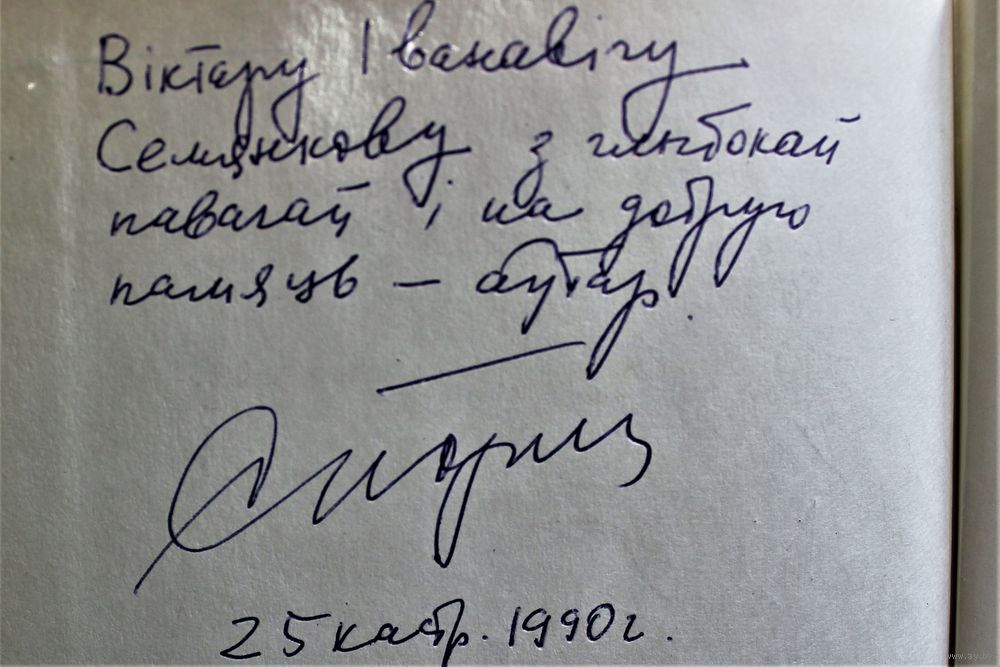 Віктару Іванавічу
Семянкову з глыбокай
павагай і на добрую
памяць — аўтар.
25 кастр. 1990 г.
www.ay.by